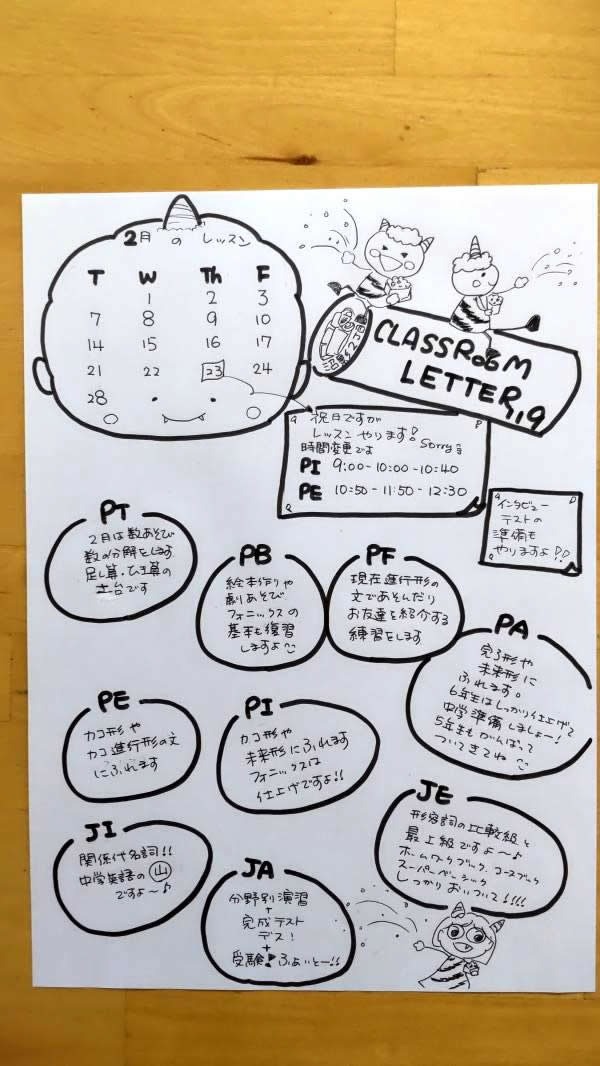 2月 の レッスン
T W Th F
1 2 3
7 8 9 10
14 15 16 17
21 22 23 24
28
CLASSROOM
LETTER,19
祝日ですが
レッスンやります! Sorry
時間変更です
PI 9:00-10:00-10:40
PE 10:50-11:50-12:30
インタビュー
テストの
準備も
やりますよ!!
PT
2月は数あそび
数の分解をします
足し算・ひき算の
土台です
PB
絵本作りや
劇あそび
フォニックスの
基本も復習
しますよ
PF
現在進行形の
文であそんだり
お友達を紹介する
練習をします
PA
完了形や
未来形に
ふれます。
6年生はしっかり仕上げて
中学準備しましょー!
5年生もがんばって
ついてきてね
PE
カコ形や
カコ進行形の文
にふれます
PI
カコ形や
未来形にふれます
フォニックスは
仕上げですよ!!
JE
形容詞の比較級と
最上級ですよ～♪
ホームワークブック、コースブック
スーパーベーシック
しっかりおいついて!!!!
JI
関係代名詞!!
中学英語の山
ですよ～♪
JA
分野別演習
+
完成テスト
デス!
+
受験 ふぁいとー!!